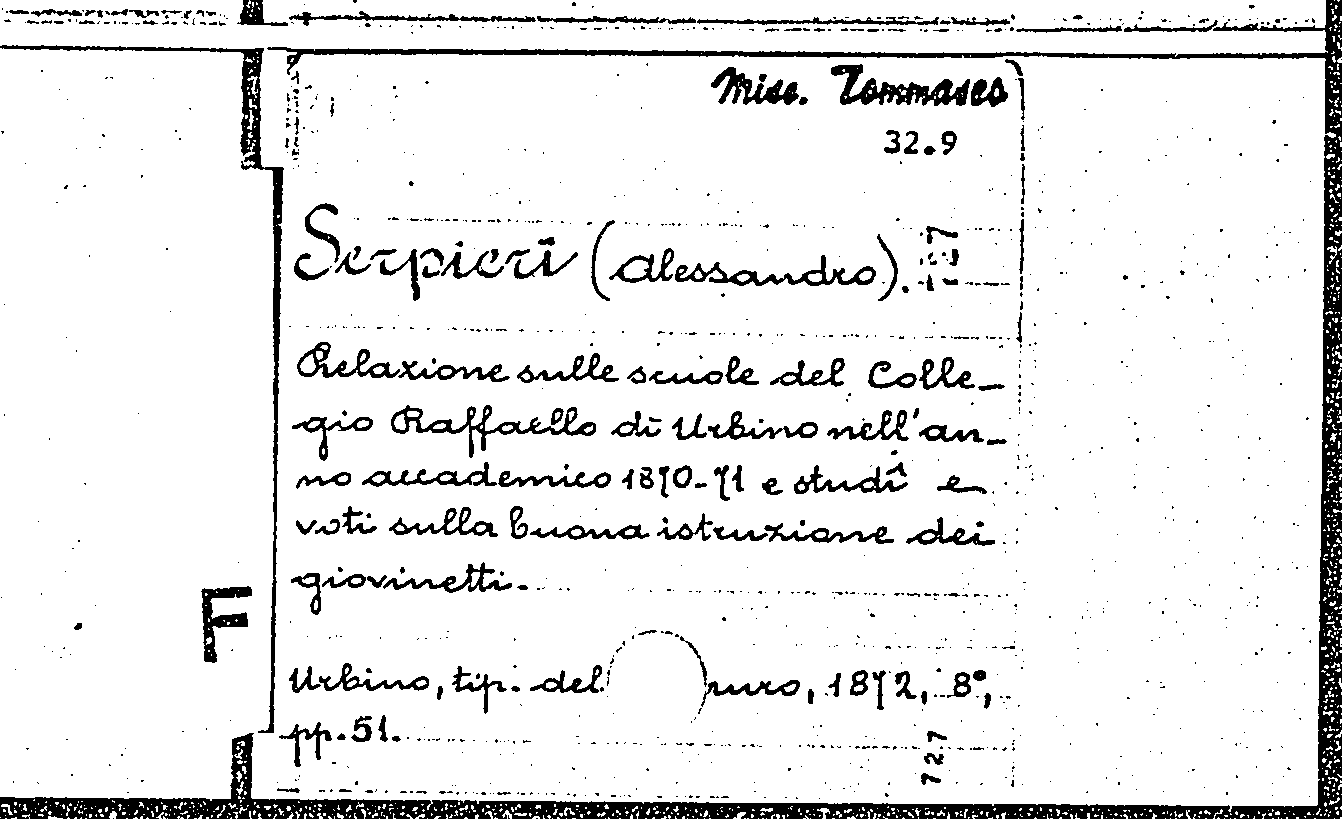 Misc. Tommaseo
32.9
Serpieri (Alessandro).
727
Relazione sulle scuole del Colle-
gio Raffaello di Urbino nell'an-
no accademico 1870-71 e studî e
voti sulla buona istruzione dei
giovinetti.
F
Urbino, tip. del
, 1872, 8°,
pp. 51.
727